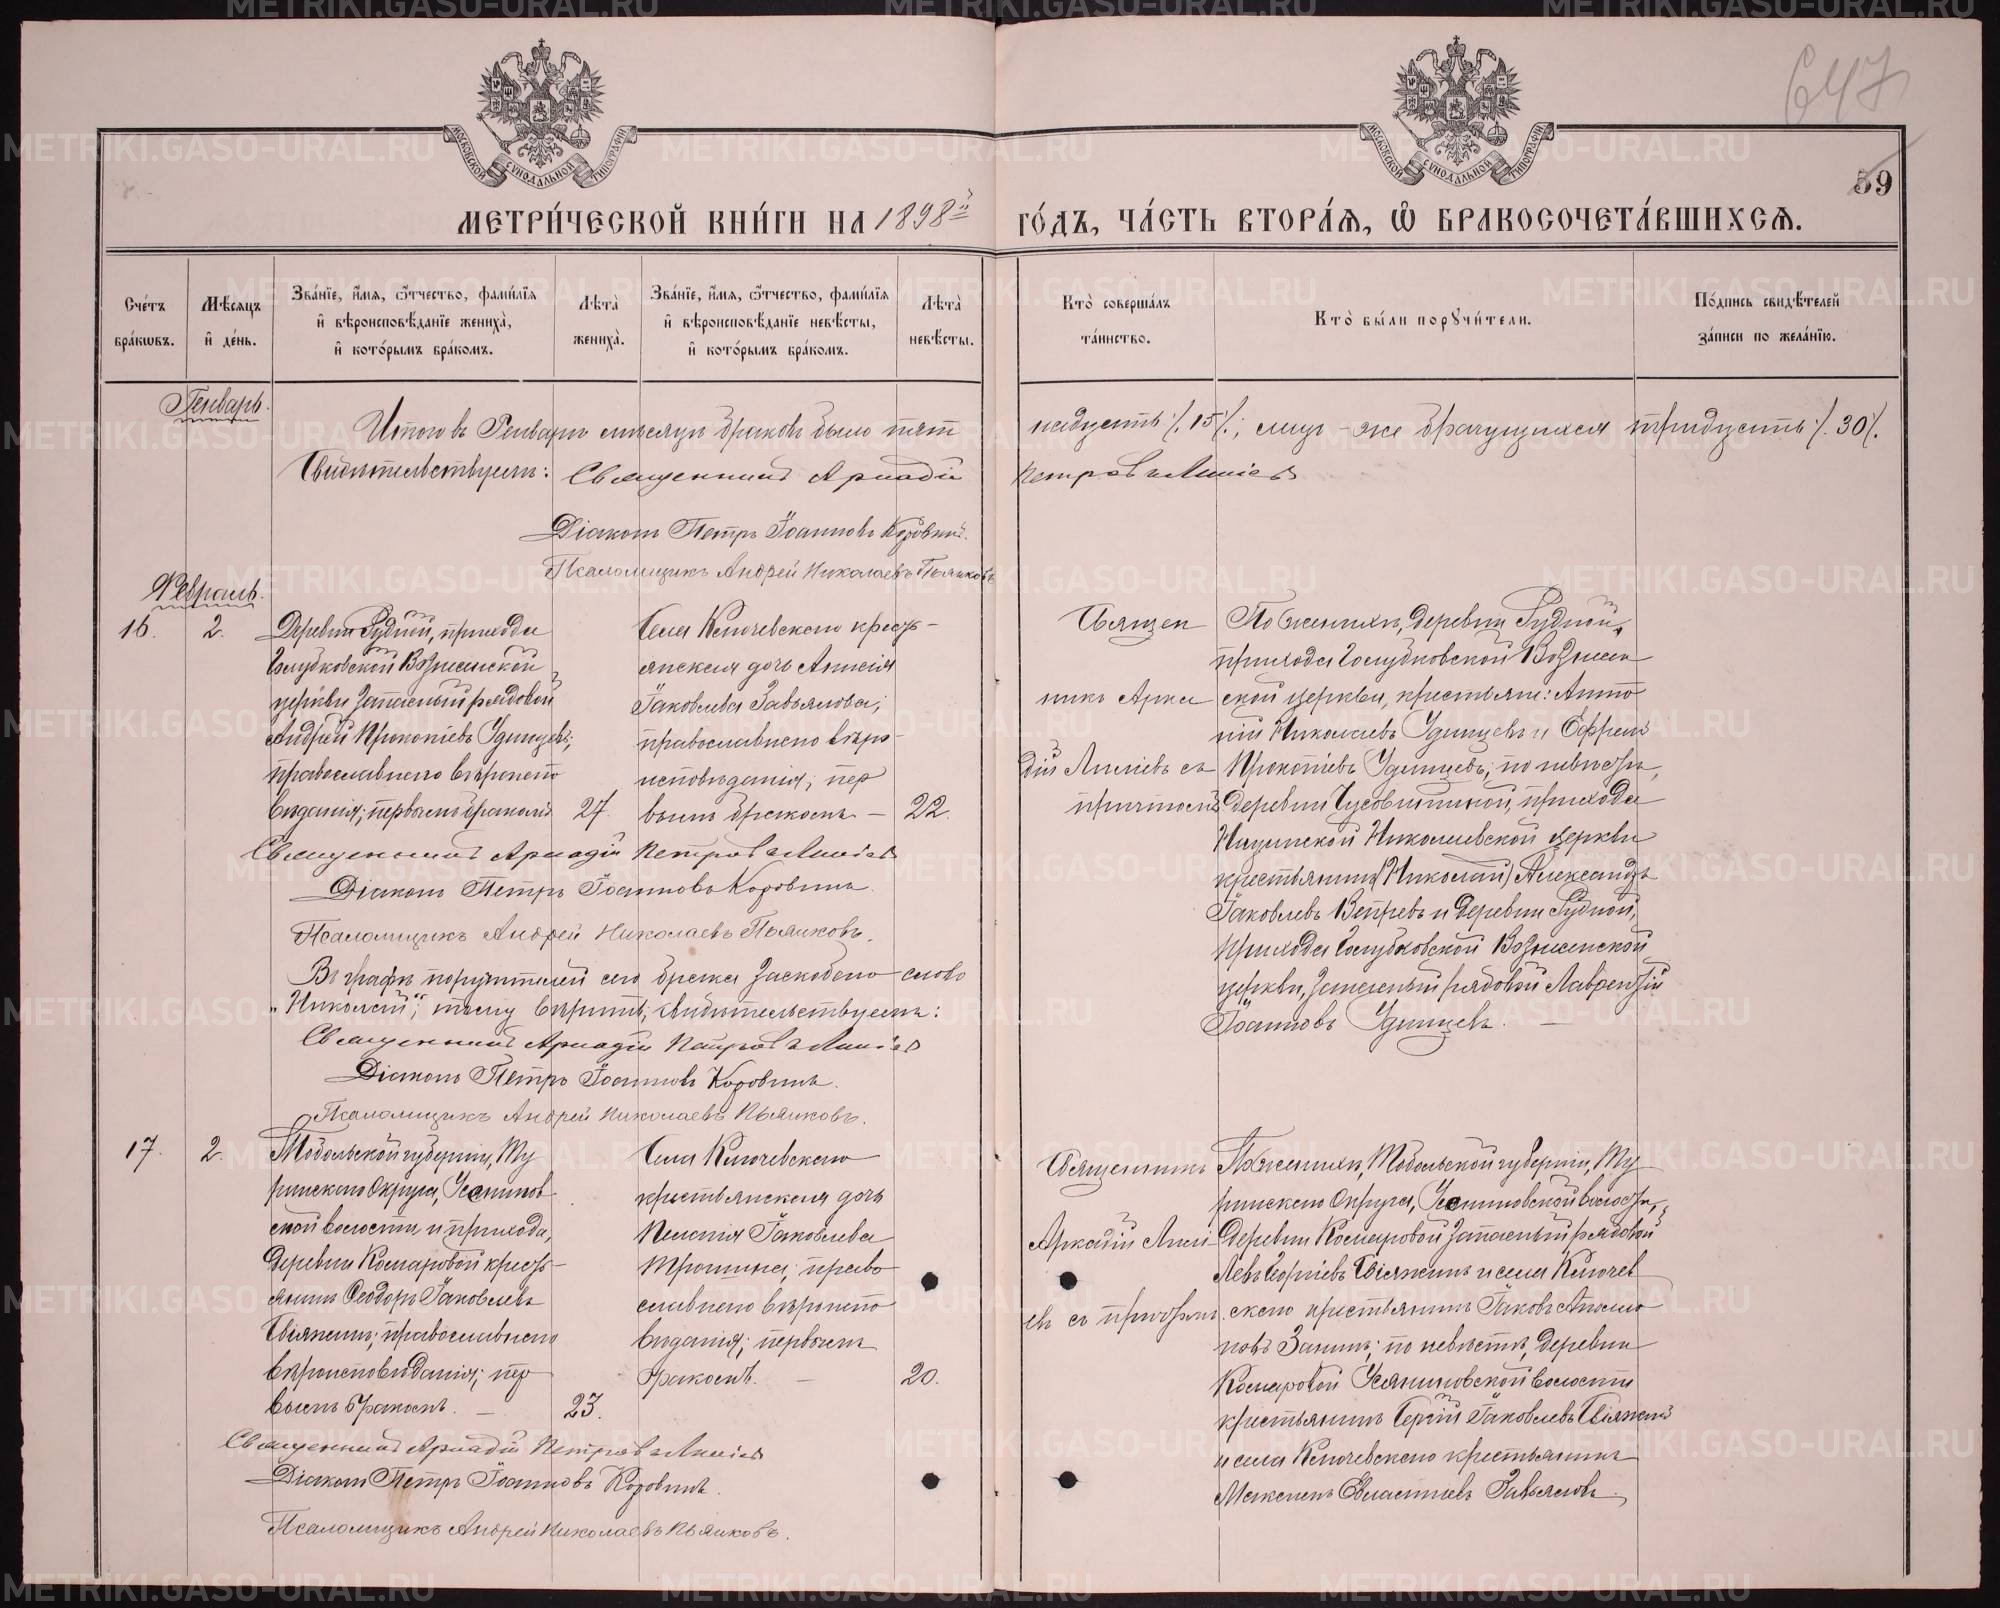 647
59
МЕТРИ́ЧЕСКОЙ КНИ́ГИ НА 1898й ГО́ДЪ, ЧА́СТЬ ВТОРА́Я, Ѡ БРАКОСОЧЕТА́ВШИХСЯ.
Сче́тъ бра́кѡвъ.
Мѣ́сяцъ и҆ де́нь.
Зва́нїе, и҆́мя, ѻ҆́тчество, фами́лїя и҆ вѣроисповѣ́данїе жениха̀, и҆ кото́рымъ бра́комъ.
Лѣта̀ жениха̀.
Зва́нїе, и҆́мя, ѻ҆́тчество, фами́лїя и҆ вѣроисповѣ́данїе невѣ́сты, и҆ кото́рымъ бра́комъ.
Лѣта̀ невѣ́сты.
Кто̀ соверша́лъ та́инство.
Кто̀ бы́ли порꙋчи́тели.
По́дпись свидѣ́телей за́писи по жела́нїю.
Генварь.
Итого въ Генварѣ мѣсяцѣ браковъ было пят
надцать /.15/.; лицъ-же брачущихся тридцать /.30/.
Свидѣтельствуемъ: Священникъ Аркадій
Петровъ
Діаконъ Петръ Іоанновъ Коровинъ.
Псаломщикъ Андрей Николаевъ Пьянковъ
Февраль.
16.
2.
Деревни Рудной, прихода
Голубковской Вознесенской
церкви запасный рядовой
Андрей Прокопіевъ Удинцевъ;
православнаго вѣроиспо
вѣданія; первымъ бракомъ
27.
Села Ключевскаго кресть-
янская дочь Аннисія
Іаковлева Завьялова;
православнаго вѣро-
исповѣданія; пер
вымъ бракомъ. —
22.
Священ
никъ Арка
дій
причтомъ
По женихѣ, деревни Рудной,
прихода Голубковской Вознесен
ской церкви, крестьяне: Анто
ній Николаевъ Удинцевъ и Ефремъ
Прокопіевъ Удинцевъ; по невѣстѣ,
деревни прихода
Ницинской Николаевской церкви
крестьянинъ (Николай) Александръ
Іаковлевъ Вепревъ и деревни Рудной,
прихода Голубковской Вознесенской
церкви, запасный рядовой Лаврентій
Іоанновъ Удинцевъ. —
Священникъ Аркадій Петровъ
Діаконъ Петръ Іоанновъ Коровинъ.
Псаломщикъ Андрей Николаевъ Пьянковъ.
Въ графѣ поручителей сего брака заскоблено слово
„Николай“; тому вѣрить, свидѣтельствуемъ:
Священникъ Аркадій Петровъ
Діаконъ Петръ Іоанновъ Коровинъ.
Псаломщикъ Андрей Николаевъ Пьянковъ.
17.
2.
Тобольской губерніи, Ту
ринскаго Округа, Усенинов
ской волости и прихода,
деревни Комаровой кресть-
янинъ Ѳеодоръ Іаковлевъ
Свіяжинъ; православнаго
вѣроисповѣданія; пер
вымъ бракомъ. —
23.
Села Ключевскаго
крестьянская дочь
Іаковлева
право
славнаго вѣроиспо
вѣданія; первымъ
бракомъ. —
20.
Священникъ
Аркадій
евъ съ причтомъ.
По женихѣ, Тобольской губерніи, Ту
ринскаго Округа, Усениновской волости,
деревни Комаровой запасный рядовой
Левъ Георгіевъ Свіяжинъ и села Ключев
скаго крестьянинъ Іаковъ
новъ Занинъ; по невѣстѣ, деревни
Комаровой Усениновской волости
крестьянинъ Сергій Іаковлевъ Свіяжинъ
и села Ключевскаго крестьянинъ
Максимъ Завьяловъ.
Священникъ Аркадій Петровъ
Діаконъ Петръ Іоанновъ Коровинъ.
Псаломщикъ Андрей Николаевъ Пьянковъ.
METRIKI.GASO-URAL.RU